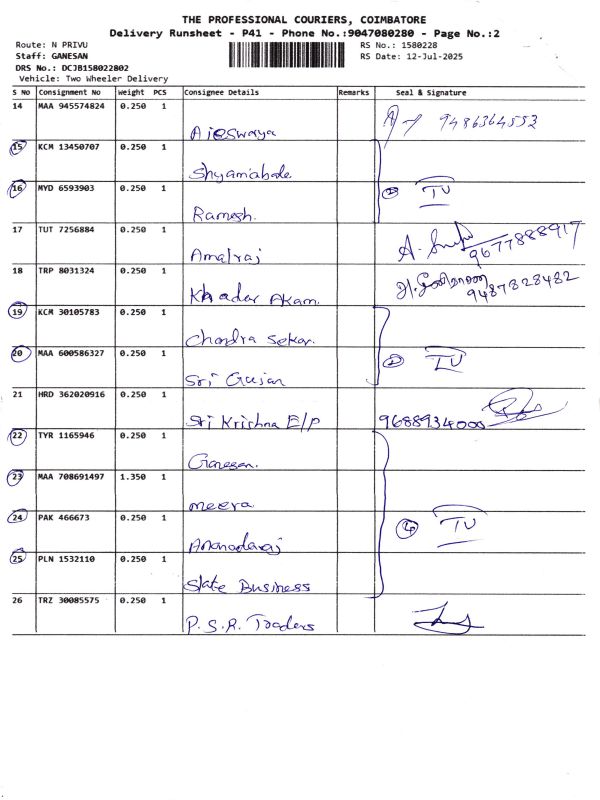 THE PROFESSIONAL COURIERS, COIMBATORE
Delivery Runsheet - P41 - Phone No.:9047080280 - Page No.:2
Route: N PRIVU RS No.: 1580228
Staff: GANESAN RS Date: 12-Jul-2025
DRS No.: DCJB158022802
Vehicle: Two Wheeler Delivery
S No Consignment No Weight PCS Consignee Details Remarks Seal & Signature
14 MAA 945574824 0.250 1
Aieswarya 9486364553
15 KCM 13450707 0.250 1
Shyamabala
16 MYD 6593903 0.250 1 2 IU
Ramesh.
17 TUT 7256884 0.250 1
Amalraj 9677888917
18 TRP 8031324 0.250 1
Khadar Akam. 9487828482
19 KCM 30105783 0.250 1
Chandra Sekar.
20 MAA 600586327 0.250 1 2 IU
Sri Gajan
21 HRD 362020916 0.250 1
Sri Krishna E/P 9688934000
22 TYR 1165946 0.250 1
Ganesan.
23 MAA 708691497 1.350 1
meera.
24 PAK 466673 0.250 1 4 IU
Ananadaraj
25 PLN 1532110 0.250 1
State Business
26 TRZ 30085575 0.250 1
P.S.R. Traders